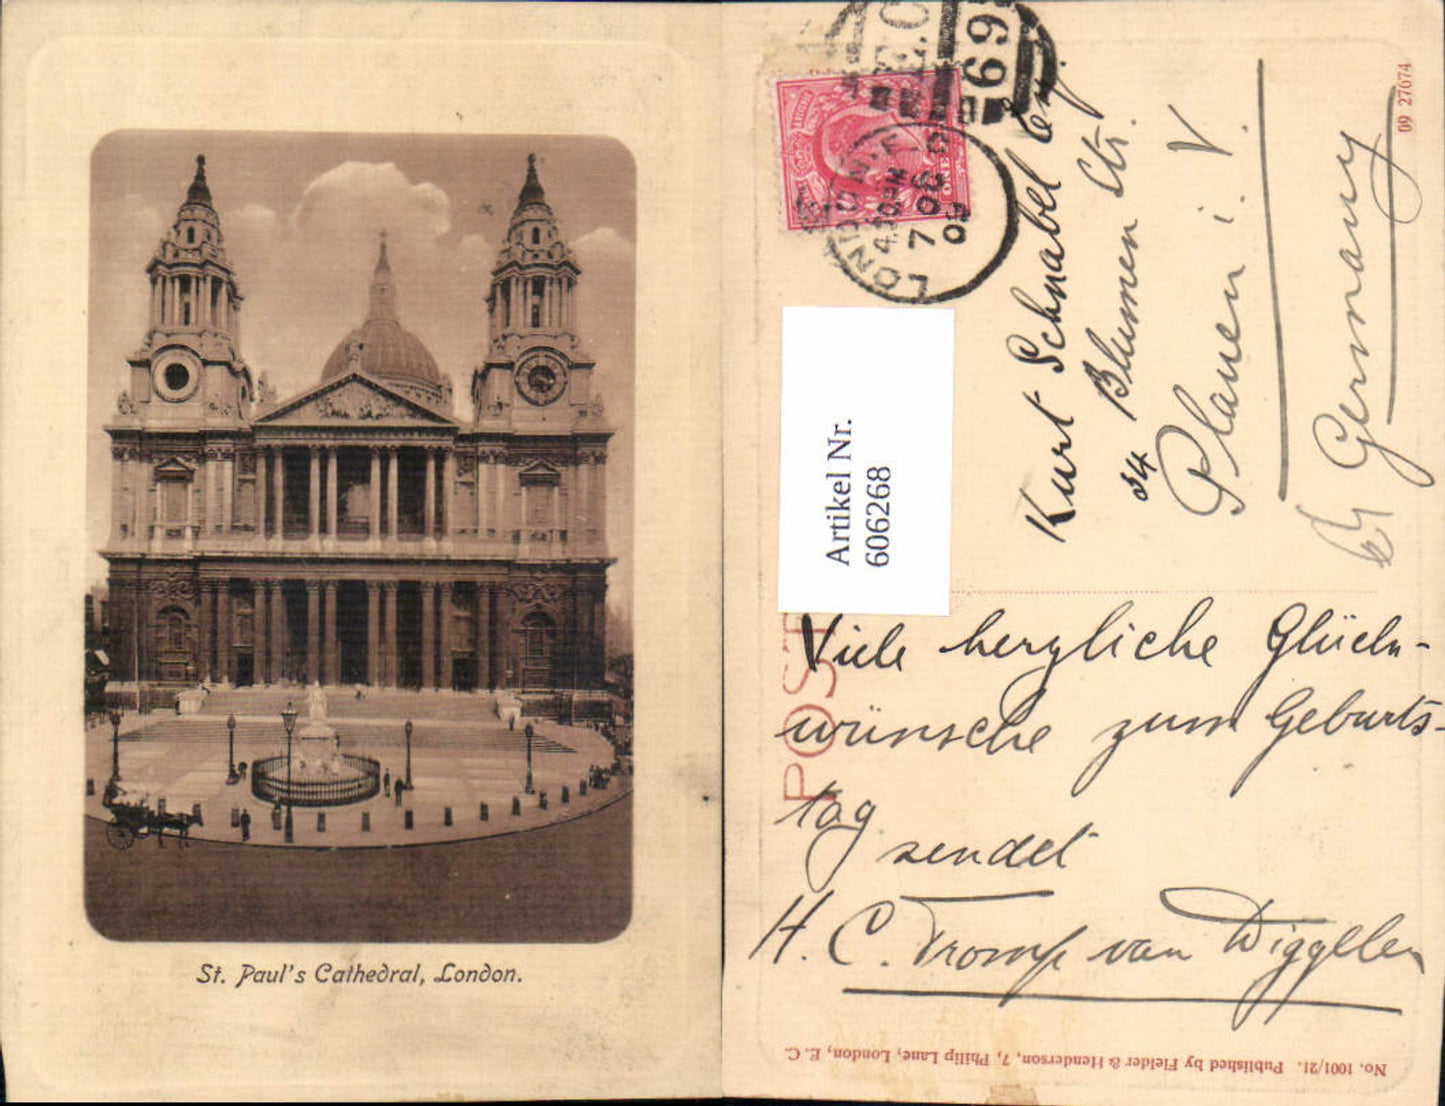 St. Paul's Cathedral, London.
69
ONE
LONDON. F.
4.30PM
7 OC
09
Artikel Nr.
606268
Kurt Schnabel
Blumen Str.
34
Plauen i. V.
Germany
POST
Viele herzliche Glück-
wünsche zum Geburts-
tag
sendet
H. C. Tromp van Diggelen
09 27674
No. 1001/21. Published by Fielder & Henderson, 7, Philip Lane, London, E. C.